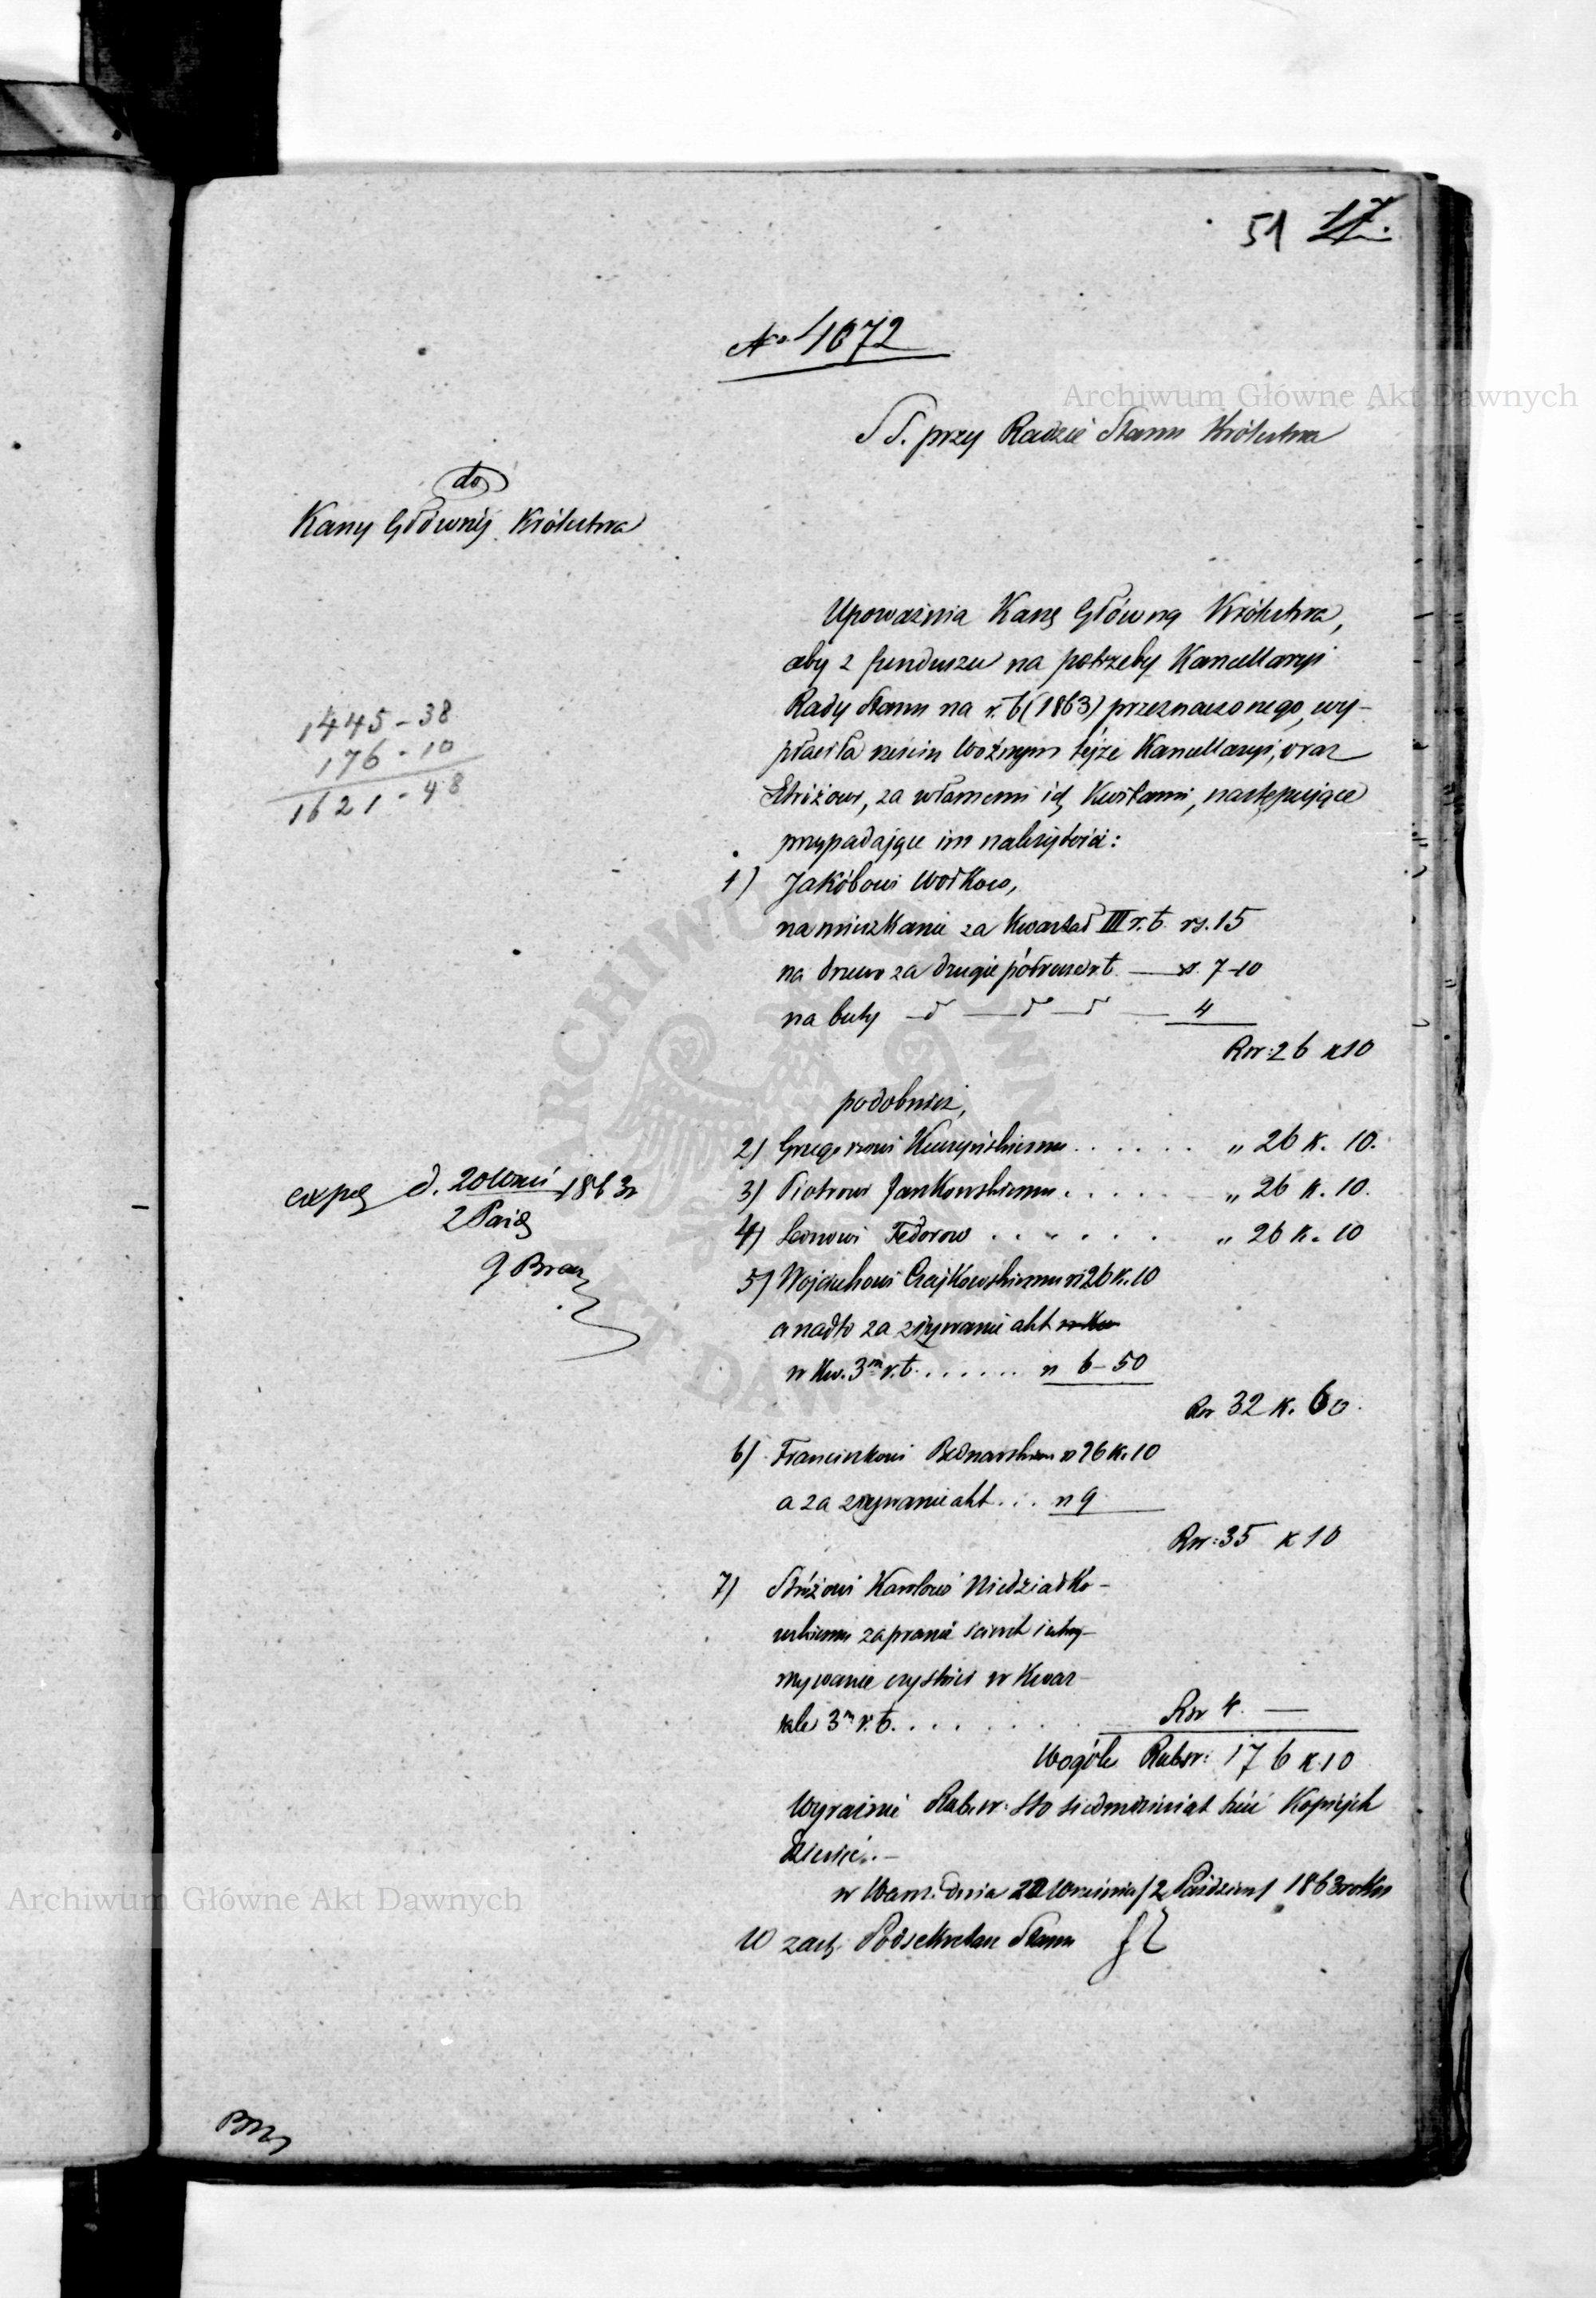 51 17.
No 1672
SS. przy Radzie Stanu Królestwa
do
Kassy Głównéj Królestwa
Upoważnia Kassę Główną Królestwa,
aby z funduszu na potrzeby Kancellaryi
Rady Stanu na r. b (1863) przeznaczonego, wy-
płaciła sześciu Woźnym téjże Kancellaryi, oraz
Stróżowi, za własnemi ich Kwitami, następujące
przypadające im należytości:
1445 - 38
176 - 10
1621 - 48
1) Jakóbowi Wołkow,
na mieszkanie za Kwartał III r. b. rs. 15
na drzewo za drugie półrocze r. b. — rs. 7-10
na buty — d — d — d — 4
Rsr: 26 k 10
podobnież,
2) Grzegorzowi . . . . . . „ 26 k. 10.
3) Piotrowi Jankowskiemu . . . . . „ 26 k. 10.
4) Leonowi Fedorow . . . . . . „ 26 k. 10
5) Wojciechowi Czajkowskiemu rs 26 k. 10
a nadto za zszywanie akt w Kw
w Kw. 3m r. b. . . . . . rs 6 - 50
Rsr 32 k. 60.
6) Franciszkowi Bednarskiemu rs 26 k. 10
a za zszywanie akt . . . rs 9
Rsr: 35 k 10
7) Stróżowi Karolowi Niedziałko-
wskiemu za pranie ścierek i utrzy-
mywanie czystości w Kwar-
tale 3m r. b. . . . . . Rsr 4. —
Wogóle Rubsr: 176 k. 10
Wyraźnie Rub. sr: sto siedmdziesiąt sześć Kopiejek
dziesięć. —
w Warsz. dnia 20 Września/2 Paździer/ 1863 roku
W zast. Podsekretarz Stanu
exped d. 20 Wrześ 1863 r
2 Paźd
BM
Archiwum Główne Akt Dawnych
Archiwum Główne Akt Dawnych